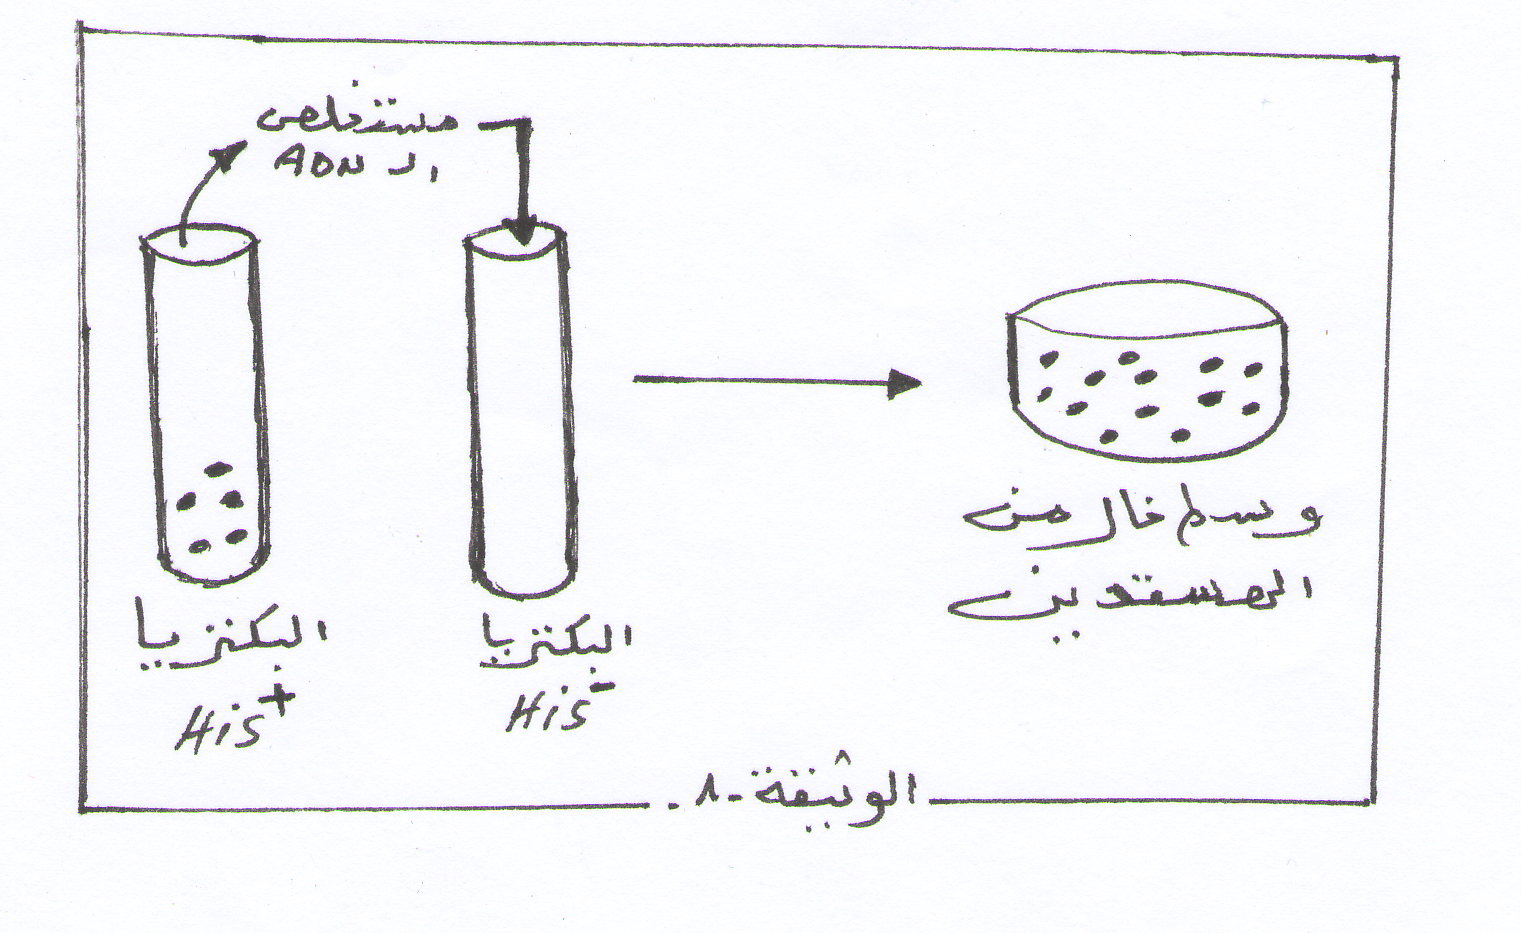 مستخلص
الـ ADN
البكتريا
His+
البكتريا
His-
وسط خال من
الهستدين
الوثيقة -1.